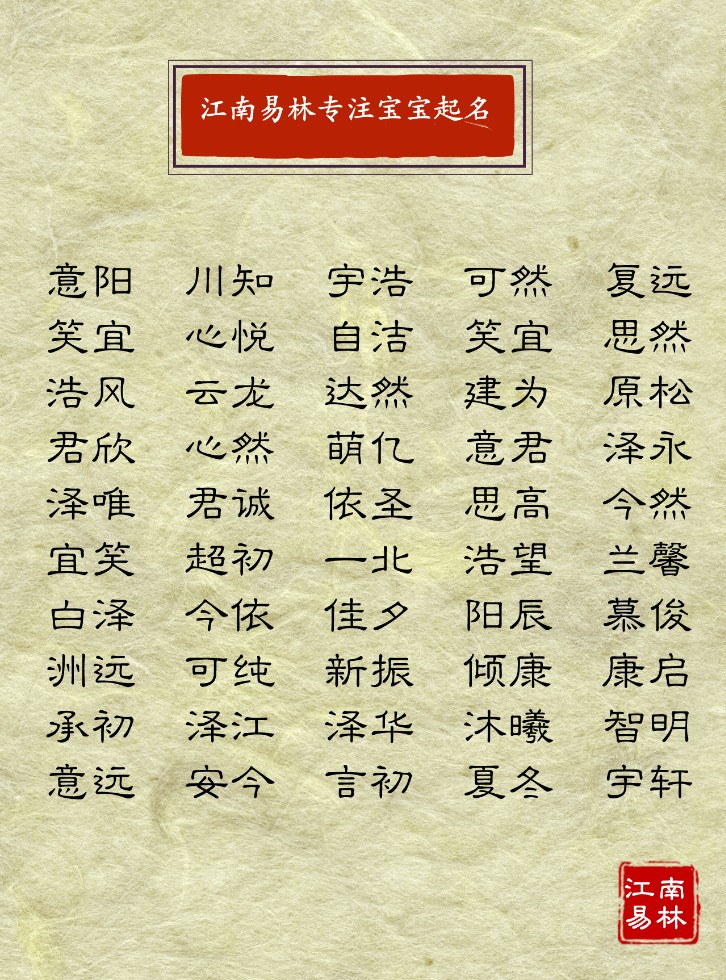 江南易林专注宝宝起名
意阳 川知 宇浩 可然 复远
笑宜 心悦 自洁 笑宜 思然
浩风 云龙 达然 建为 原松
君欣 心然 萌亿 意君 泽永
泽唯 君诚 依圣 思高 今然
宜笑 超初 一北 浩望 兰馨
白泽 今依 佳夕 阳辰 慕俊
洲远 可纯 新振 倾康 康启
承初 泽江 泽华 沐曦 智明
意远 安今 言初 夏冬 宇轩
江南
易林